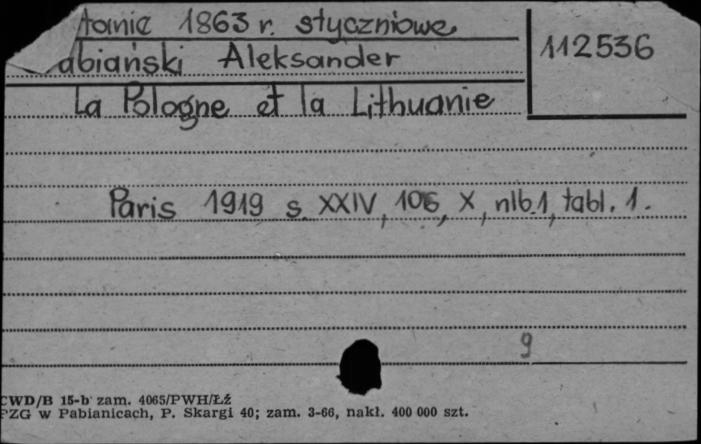 tanie 1863 r. styczniowe
112536
abiański Aleksander
La Pologne et la Lithuanie
Paris 1919 s. XXIV, 106, X, nlb.1, tabl. 1.
9
CWD/B 15-b zam. 4065/PWH/Łź
PZG w Pabianicach, P. Skargi 40; zam. 3-66, nakł. 400 000 szt.